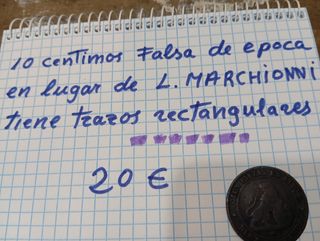 10 centimos Falsa de epoca
en lugar de L. MARCHIONNI
tiene trazos rectangulares
20 €